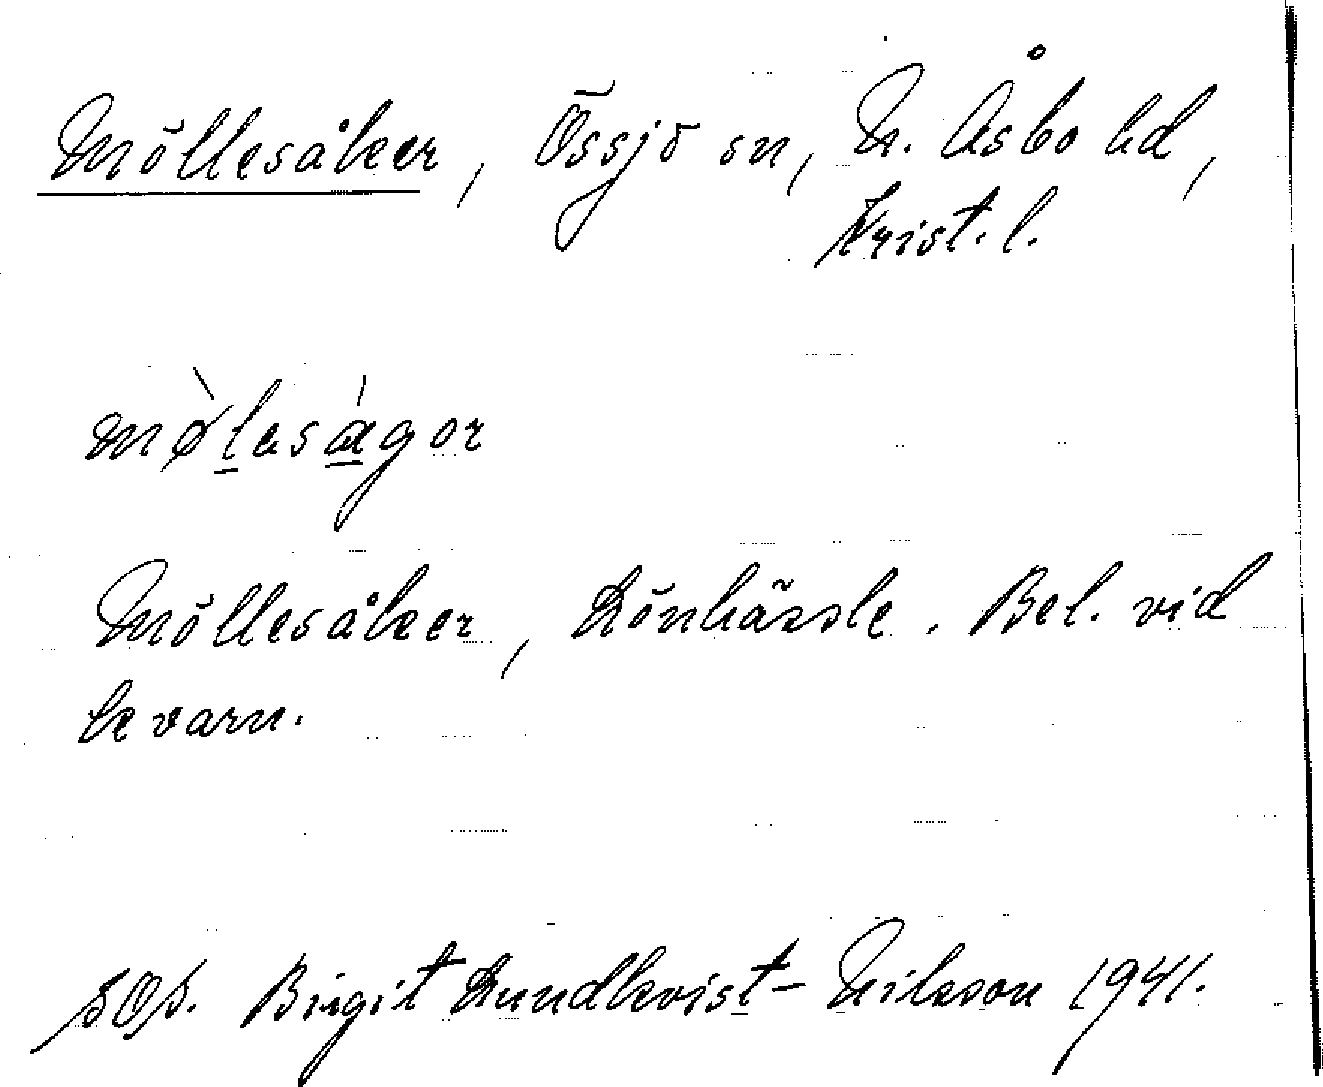 Möllesåker, Össjö sn, N. Åsbo hd,
Krist. l.
mø̀laságor
Möllesåker, Lönhässle. Bel. vid
kvarn.
SOS. Birgit Lundkvist-Nilsson 1941.